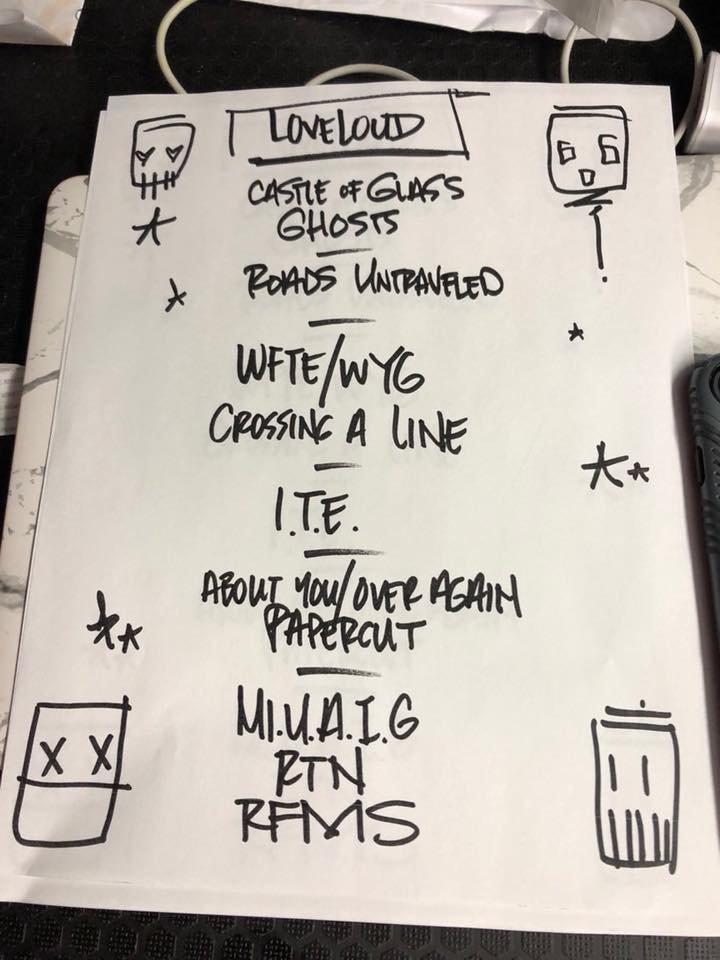 LOVELOUD
CASTLE OF GLASS
GHOSTS
ROADS UNTRAVELED
WFTE/WYG
CROSSING A LINE
I.T.E.
ABOUT YOU/OVER AGAIN
PAPERCUT
M.I.U.A.I.G
RTN
RFMS